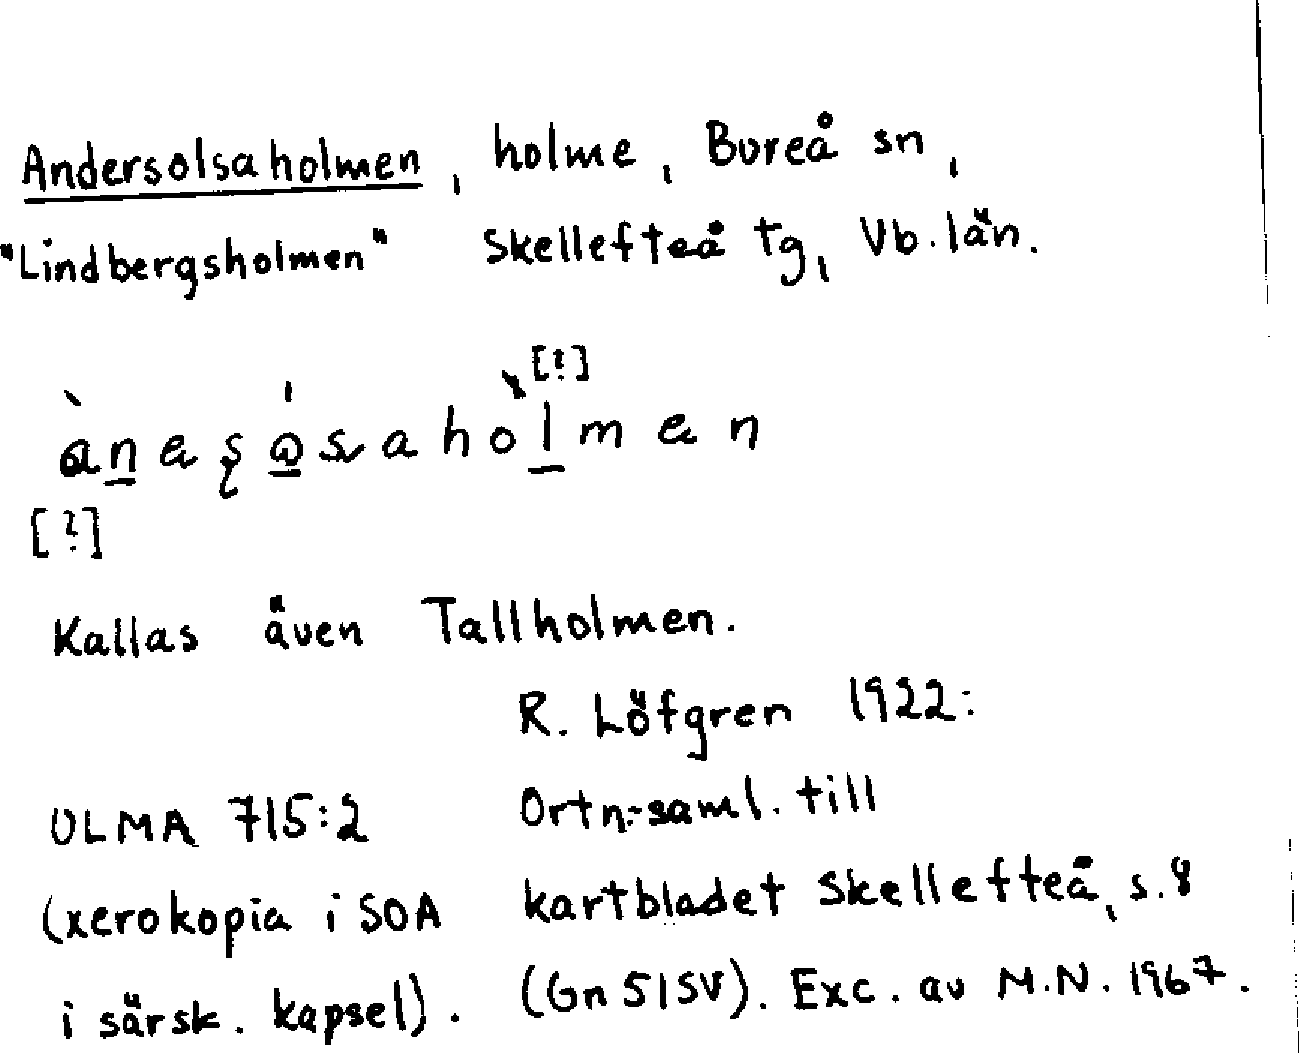 Andersolsaholmen, holme, Bureå sn,
"Lindbergsholmen" Skellefteå tg, Vb. län.
[?]
[?]
Kallas även Tallholmen.
R. Löfgren 1922:
ULMA 715:2 Ortn:saml. till
(xerokopia i SOA kartbladet Skellefteå, s. 8
i särsk. kapsel). (Gn 51SV). Exc. av M.N. 1967.